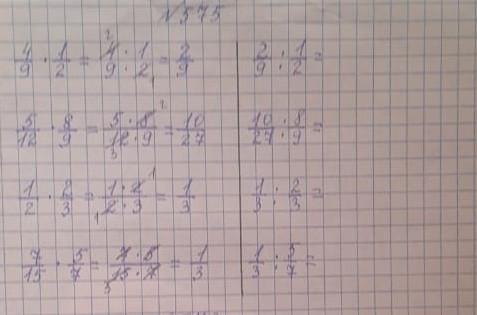 №575
4/9 · 1/2 = 4 · 1 / 9 · 2 = 2/9
2/9 : 1/2 =
5/12 · 8/9 = 5 · 8 / 12 · 9 = 10/27
10/27 : 8/9 =
1/2 · 2/3 = 1 · 2 / 2 · 3 = 1/3
1/3 : 2/3 =
7/15 · 5/7 = 7 · 5 / 15 · 7 = 1/3
1/3 : 5/7 =